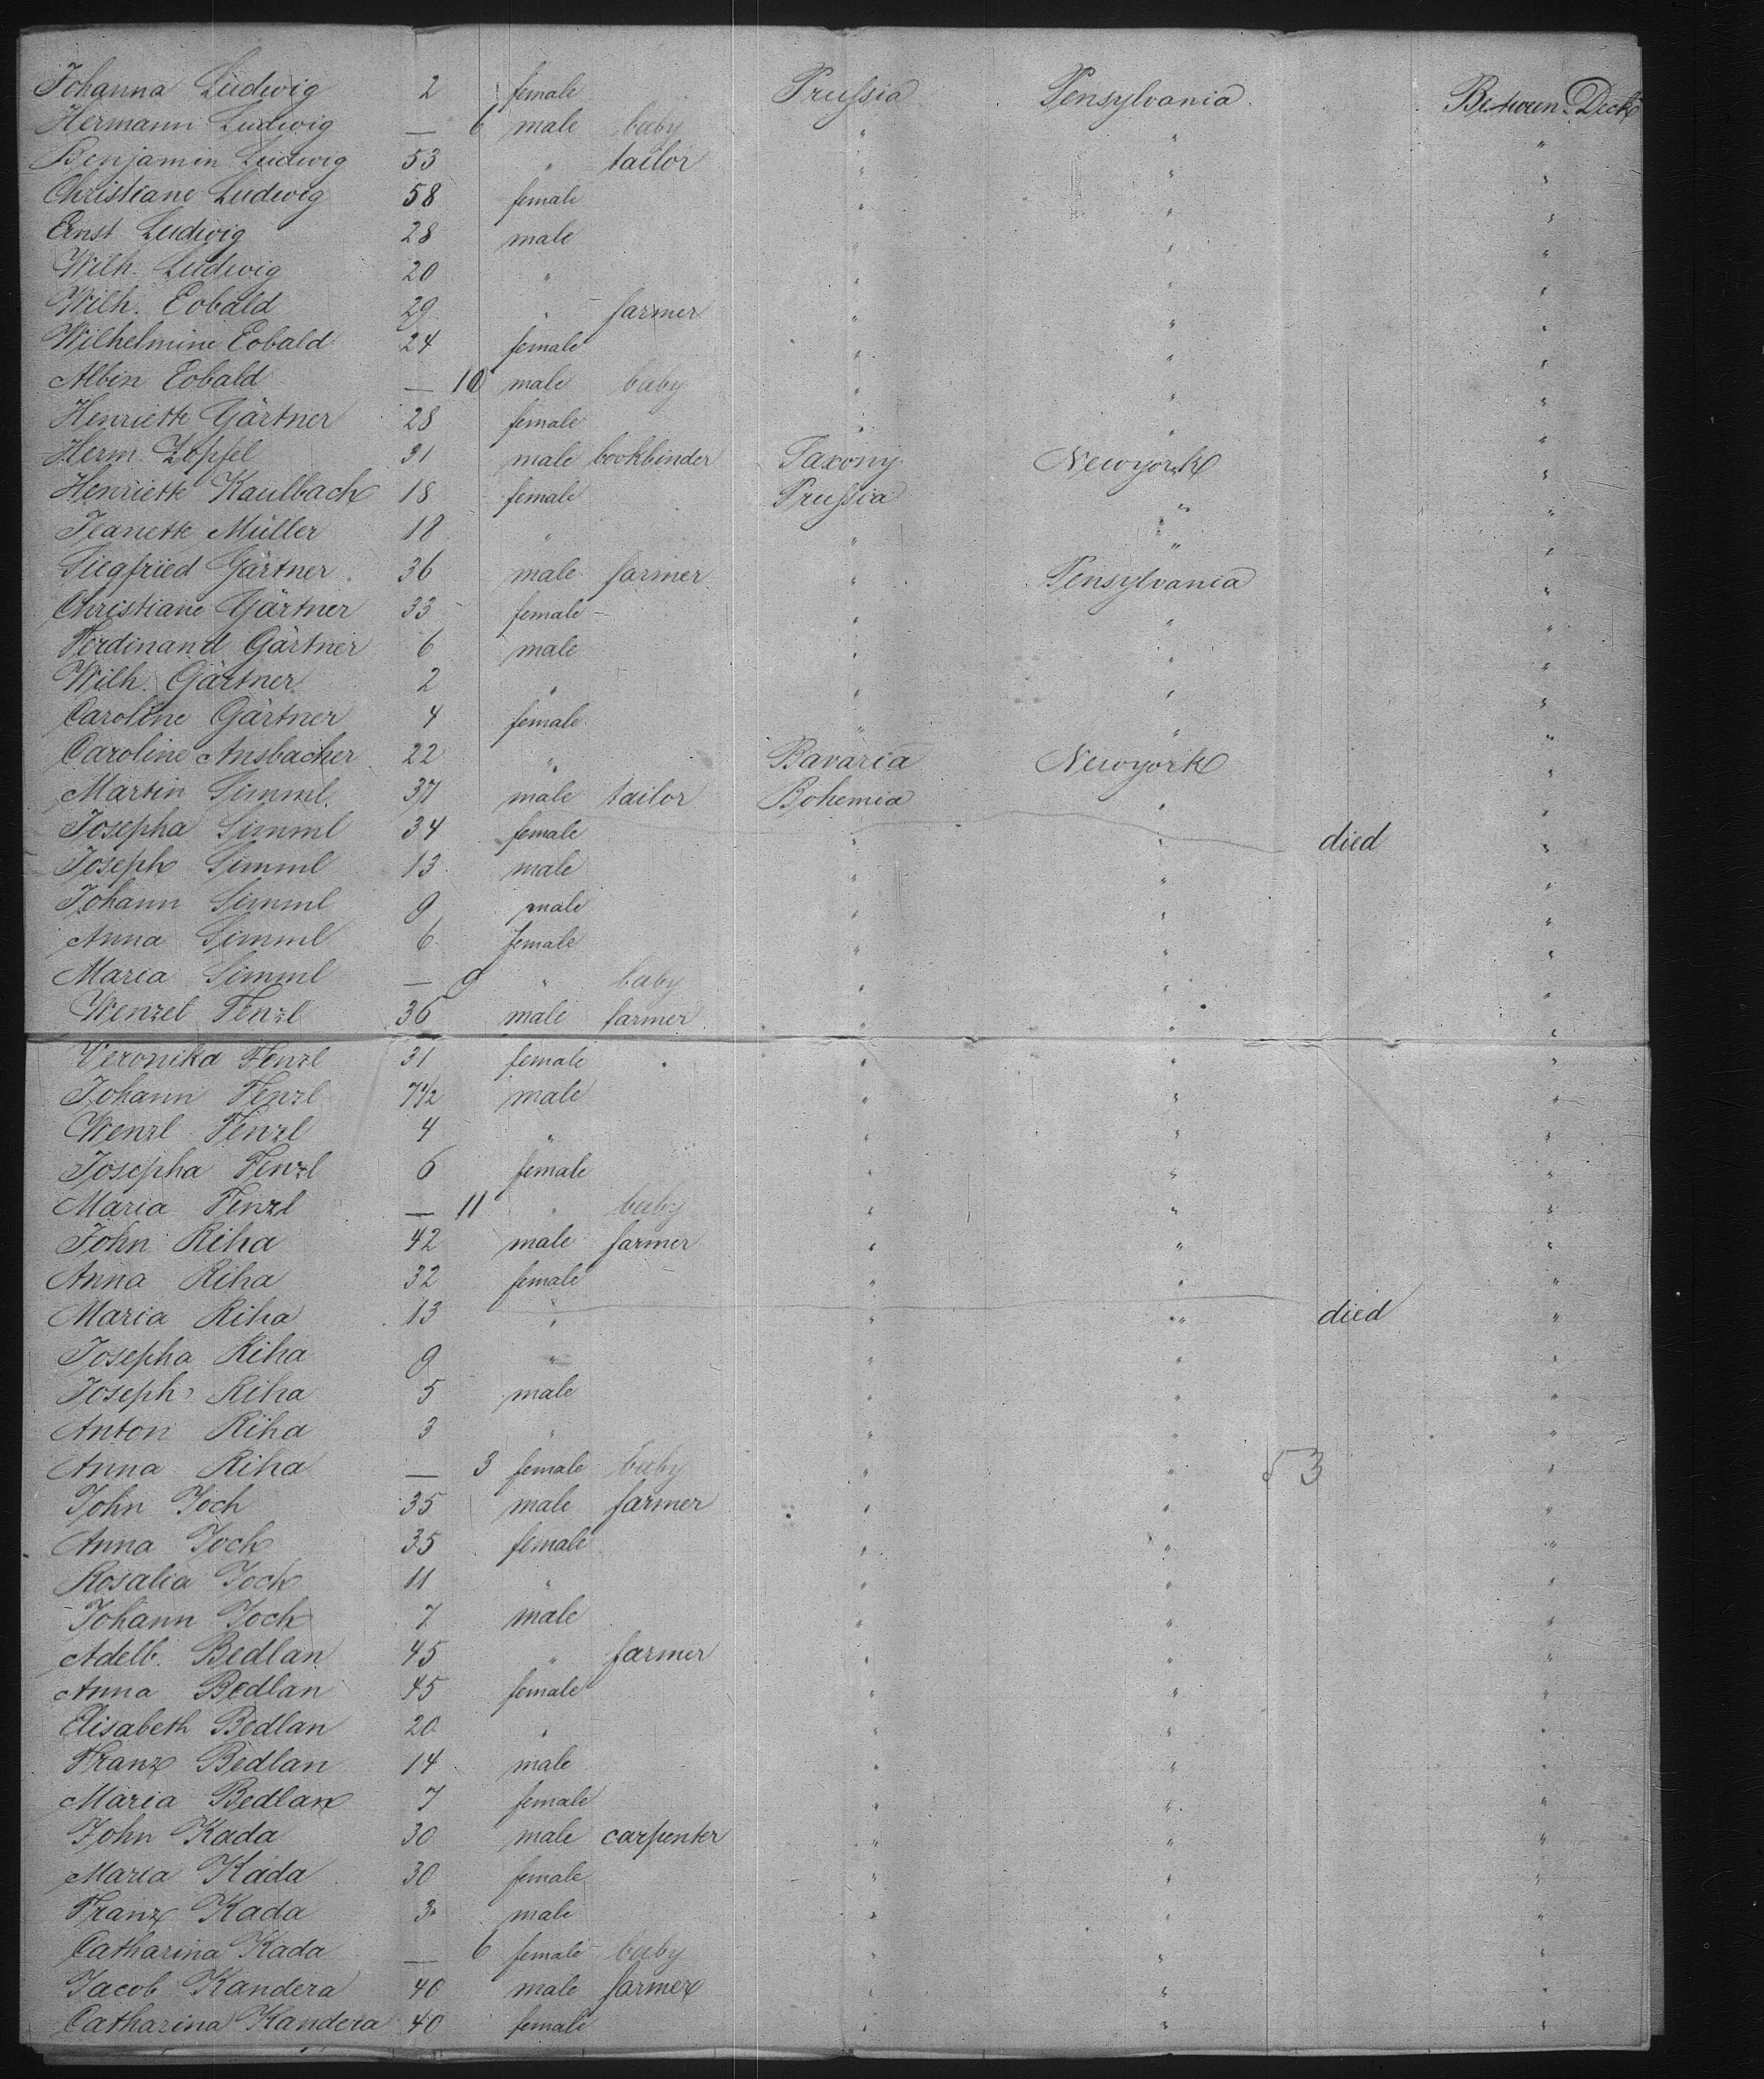 Johanna Ludwig 2 female Prussia Pensylvania Between Deck
Hermann Ludwig — 6 male baby " " "
Benjamin Ludwig 53 " tailor " " "
Christiane Ludwig 58 female " " "
Ernst Ludwig 28 male " " "
Wilh. Ludwig 20 " " " "
Wilh. Eobald 29 " farmer " " "
Wilhelmine Eobald 24 female " " "
Albin Eobald — 10 male baby " " "
Henriette Gärtner 28 female " " "
Herm. Zopfel 31 male bookbinder Saxony Newyork "
Henriette Kaulbach 18 female Prussia " "
Jeanette Müller 18 " " " "
Siegfried Gärtner 36 male farmer " Pensylvania "
Christiane Gärtner 33 female " " "
Ferdinand Gärtner 6 male " " "
Wilh. Gärtner 2 " " " "
Caroline Gärtner 4 female " " "
Caroline Ansbacher 22 " Bavaria Newyork "
Martin Simml 37 male tailor Bohemia " "
Josepha Simml 34 female " " died "
Joseph Simml 13 male " " "
Johann Simml 9 male " " "
Anna Simml 6 female " " "
Maria Simml — 9 " baby " " "
Wenzel Fenzl 36 male farmer " " "
Veronika Fenzl 31 female " " "
Johann Fenzl 7 1/2 male " " "
Wenzl Fenzl 4 " " " "
Josepha Fenzl 6 female " " "
Maria Fenzl — 11 " baby " " "
John Riha 42 male farmer " " "
Anna Riha 32 female " " "
Maria Riha 13 " " " died "
Josepha Riha 9 " " " "
Joseph Riha 5 male " " "
Anton Riha 3 " " " "
Anna Riha — 3 female baby " " 53 "
John Joch 35 male farmer " " "
Anna Joch 35 female " " "
Rosalia Joch 11 " " " "
Johann Joch 7 male " " "
Adelb. Bedlan 45 " farmer " " "
Anna Bedlan 45 female " " "
Elisabeth Bedlan 20 " " " "
Franz Bedlan 14 male " " "
Maria Bedlan 7 female " " "
John Kada 30 male carpenter " " "
Maria Kada 30 female " " "
Franz Kada 3 male " " "
Catharina Kada — 6 female baby " " "
Jacob Kandera 40 male farmer " " "
Catharina Kandera 40 female " " "